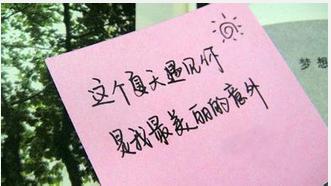 这个夏天遇见你
是我最美丽的意外
梦想